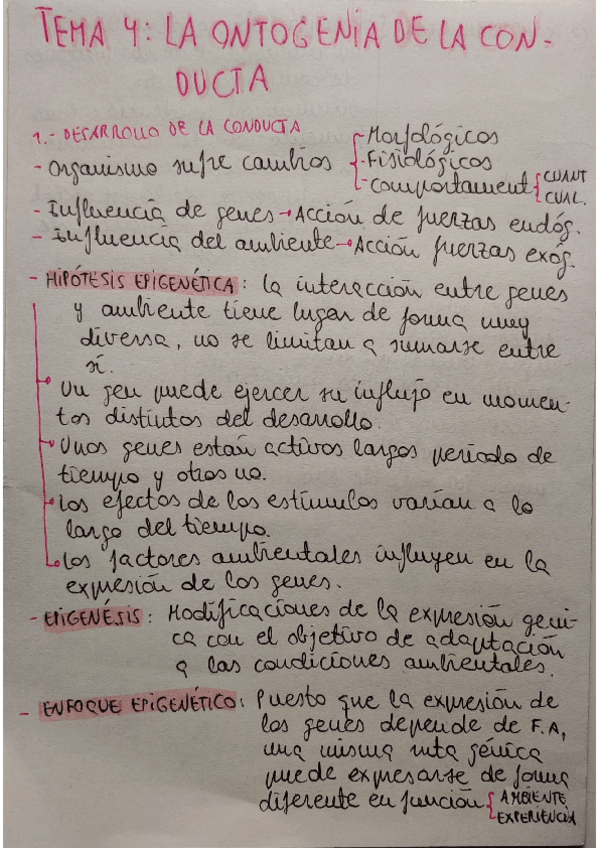 TEMA 4: LA ONTOGENIA DE LA CON-
DUCTA
1.- DESARROLLO DE LA CONDUCTA
- Organismo sufre cambios
- Morfológicos
- Fisiológicos
- Comportament
CUANT
CUAL.
- Influencia de genes → Acción de fuerzas endóg.
- Influencia del ambiente → Acción fuerzas exóg.
- HIPÓTESIS EPIGENÉTICA: la interacción entre genes
y ambiente tiene lugar de forma muy
diversa, no se limitan a sumarse entre
sí.
Un gen puede ejercer su influjo en momen-
tos distintos del desarrollo.
Unos genes están activos largos periodo de
tiempo y otros no.
Los efectos de los estímulos varían a lo
largo del tiempo.
Los factores ambientales influyen en la
expresión de los genes.
- EPIGENÉSIS: Modificaciones de la expresión gení-
ca con el objetivo de adaptación
a las condiciones ambientales.
- ENFOQUE EPIGENÉTICO: Puesto que la expresión de
los genes depende de F.A,
una misma ruta génica
puede expresarse de forma
diferente en función
AMBIENTE
EXPERIENCIA